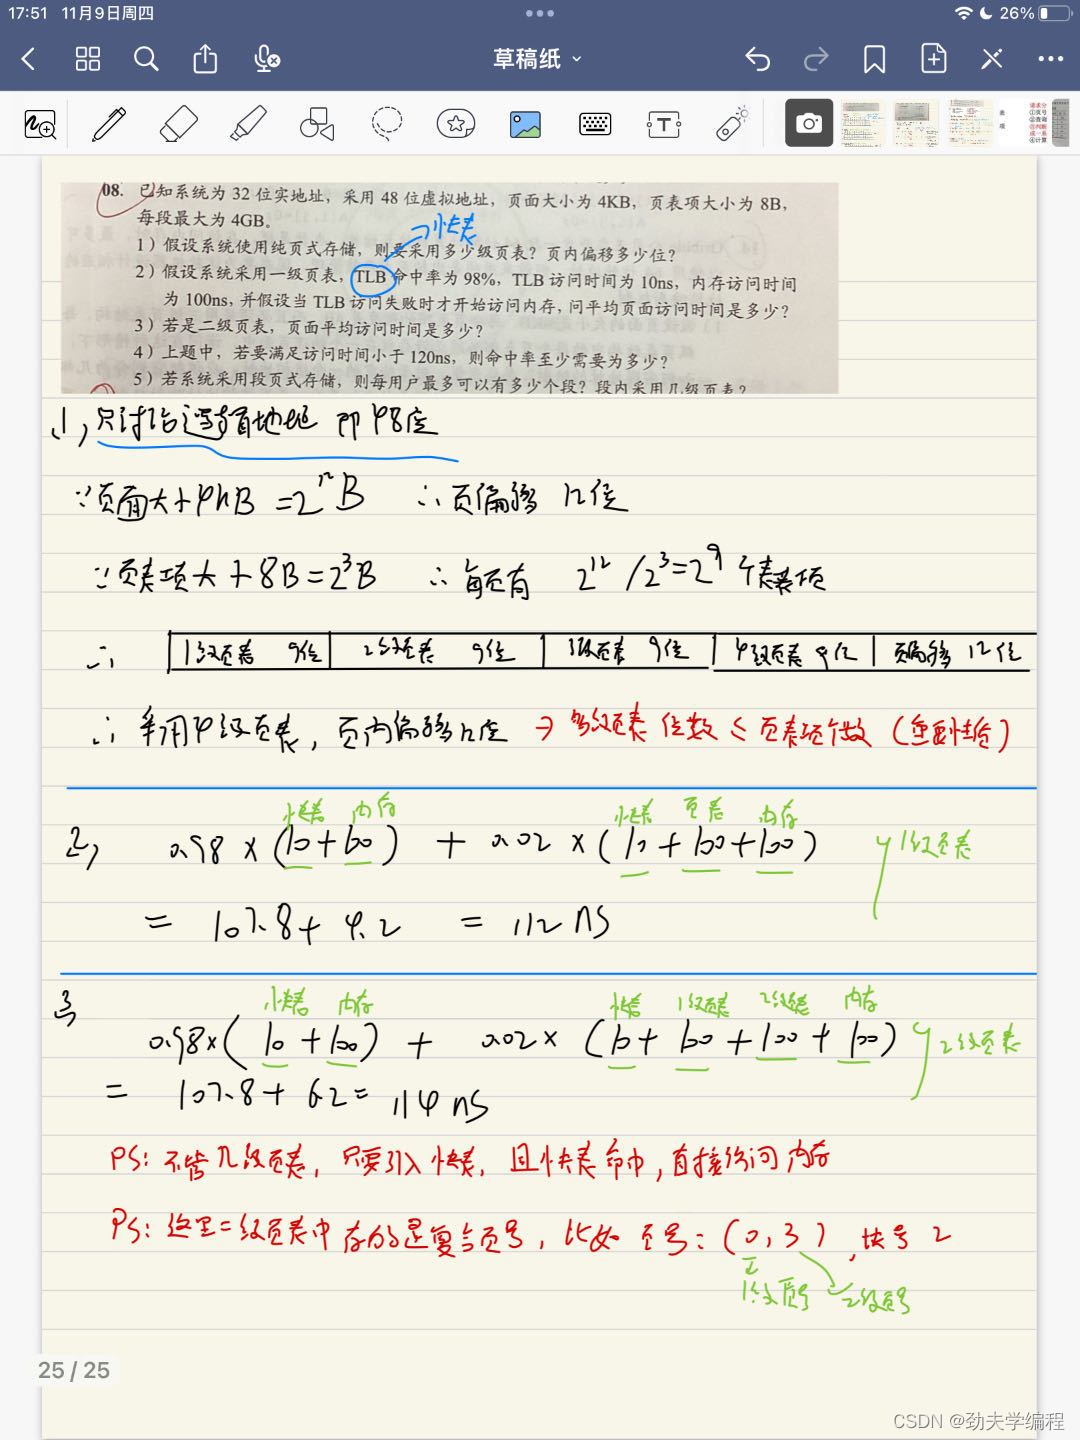 17:51 11月9日周四
26%
草稿纸
08. 已知系统为 32 位实地址，采用 48 位虚拟地址，页面大小为 4KB，页表项大小为 8B，
每段最大为 4GB。
→快表
1）假设系统使用纯页式存储，则要采用多少级页表？页内偏移多少位？
2）假设系统采用一级页表，TLB 命中率为 98%，TLB 访问时间为 10ns，内存访问时间
为 100ns，并假设当 TLB 访问失败时才开始访问内存，问平均页面访问时间是多少？
3）若是二级页表，页面平均访问时间是多少？
4）上题中，若要满足访问时间小于 120ns，则命中率至少需要为多少？
5）若系统采用段页式存储，则每用户最多可以有多少个段？段内采用几级页表？
1, 只讨论逻辑地址 即48位
∵页面大小4KB =2^12 B ∴页偏移 12位
∵页表项大小8B=2^3B ∴每页有 2^12/2^3=2^9 个表项
∴ 1级页表 9位 2级页表 9位 3级页表 9位 4级页表 9位 页偏移 12位
∴采用4级页表，页内偏移12位 → 多级页表位数 ≤ 页表项个数
快表 内存 快表 页表 内存
2, 0.98×(10+100) + 0.02×(10+100+100) 1级页表
= 107.8+4.2 = 112 ns
快表 内存 快表 1级页表 2级页表 内存
3, 0.98×(10+100) + 0.02×(10+100+100+100) 2级页表
= 107.8+6.2= 114 ns
PS: 不管几级页表，只要引入快表，且快表命中，直接访问内存
PS: 这里二级页表中存的是复合页号，比如 页号:(0,3)，块号 2
1级页号 二级页号
25 / 25
CSDN @劲夫学编程